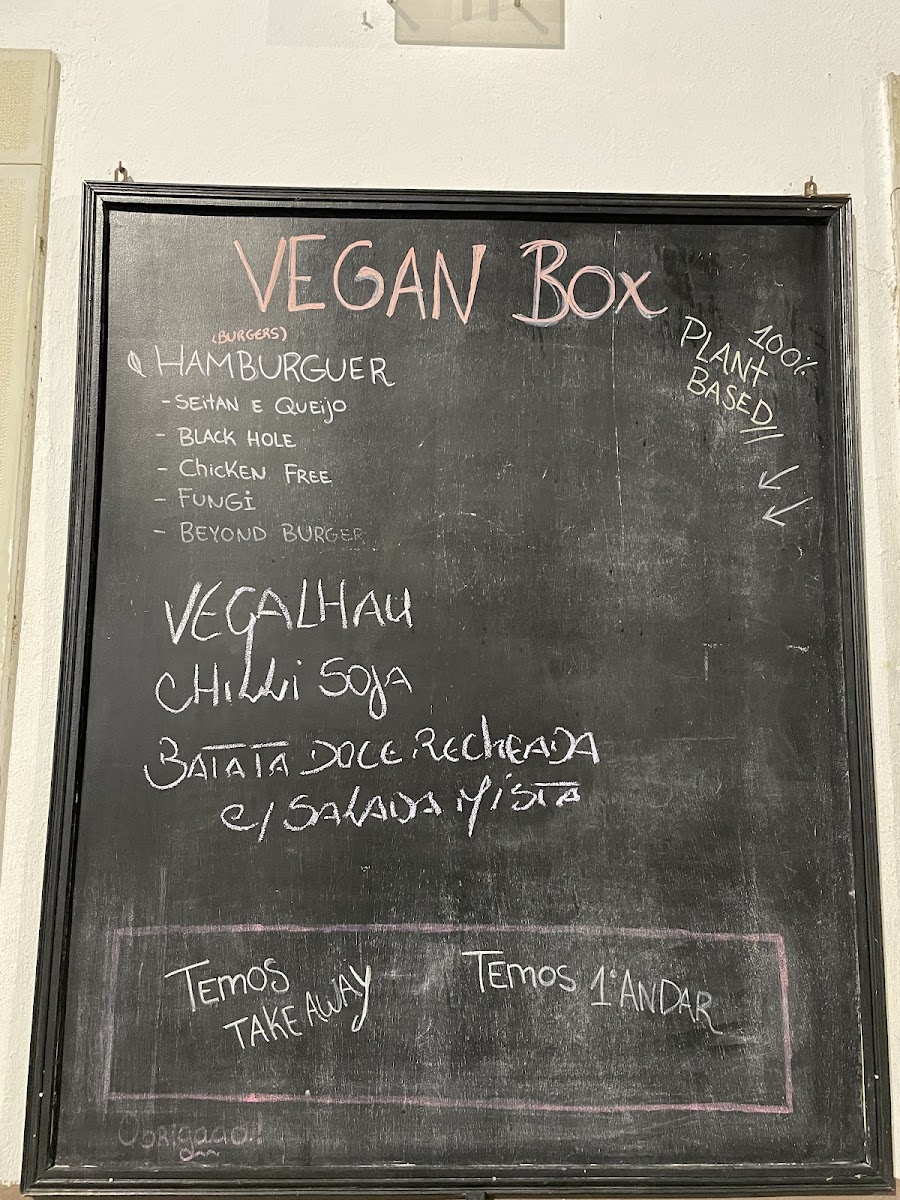 VEGAN BOX
(BURGERS)
HAMBURGUER
100%
PLANT
BASED
- SEITAN E QUEIJO
- BLACK HOLE
- CHICKEN FREE
- FUNGI
- BEYOND BURGER
VEGALHAU
CHILLI SOJA
BATATA DOCE RECHEADA
C/ SALADA MISTA
TEMOS
TAKE AWAY
TEMOS 1º ANDAR
OBRIGADO!